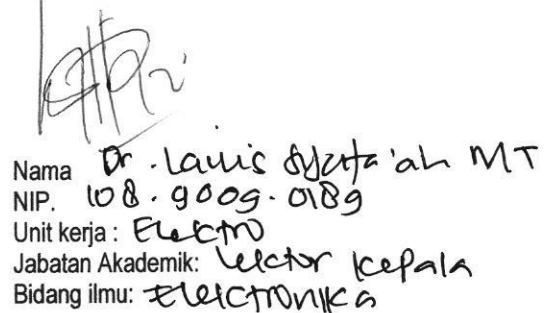 Nama Dr. Lailis Syafa'ah MT
NIP. 108.9009.0189
Unit kerja : Elektro
Jabatan Akademik: Lektor Kepala
Bidang ilmu: Elektronika